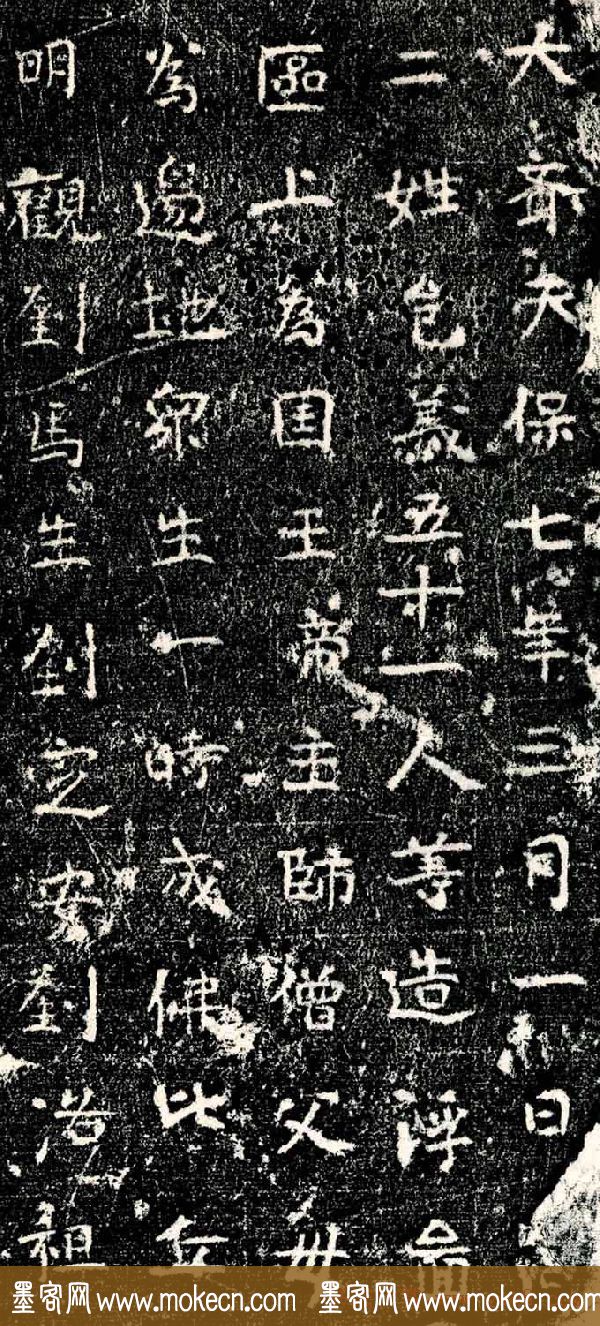 大齊天保七年三月一日
二姓邑義五十一人等造浮啚
區上為国王帝主師僧父毋
為邊地眾生一時成佛比丘
明觀劉馬生劉定安劉浩祖
墨客网 www.mokecn.com 墨客网 www.mokecn.com